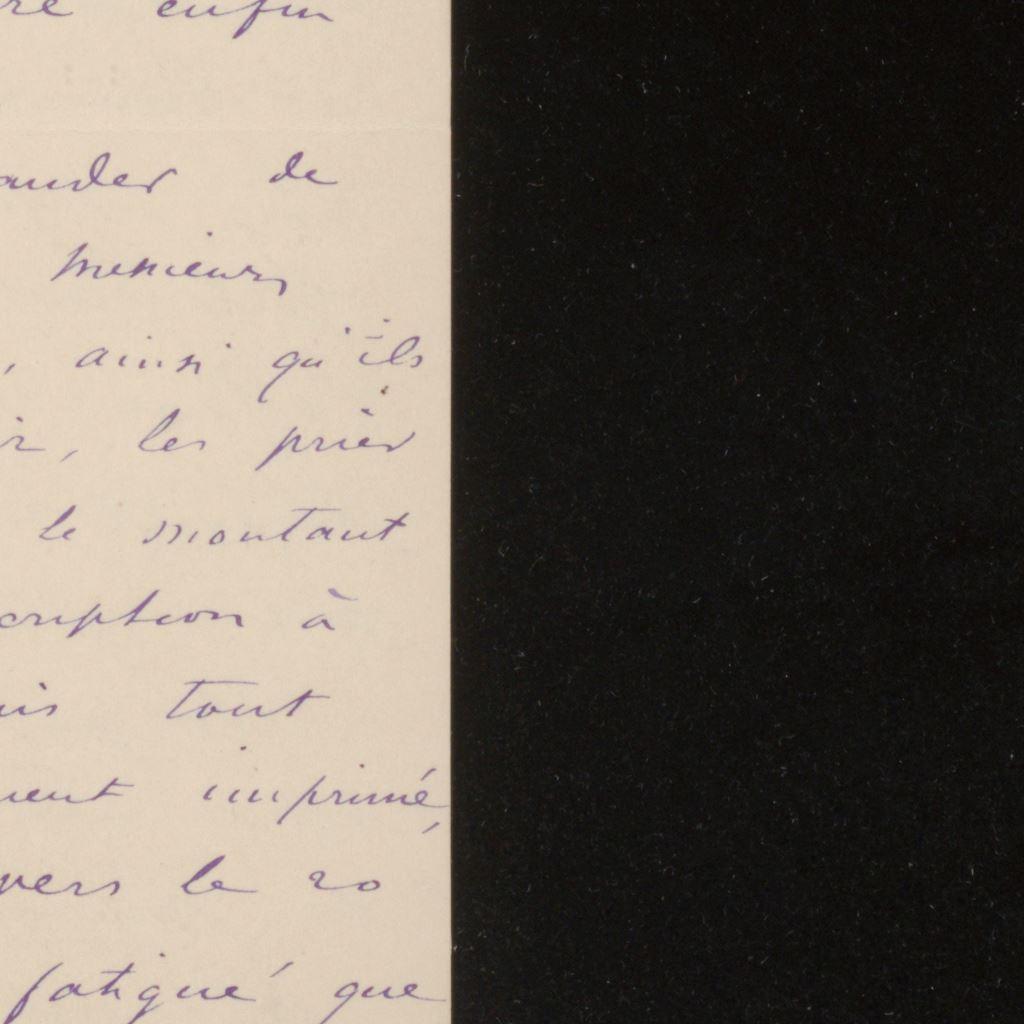 re enfin
ander de
messieurs
, ainsi qu'ils
ir, les prier
le montant
cription à
is tout
ment imprimé,
vers le 20
fatigué que